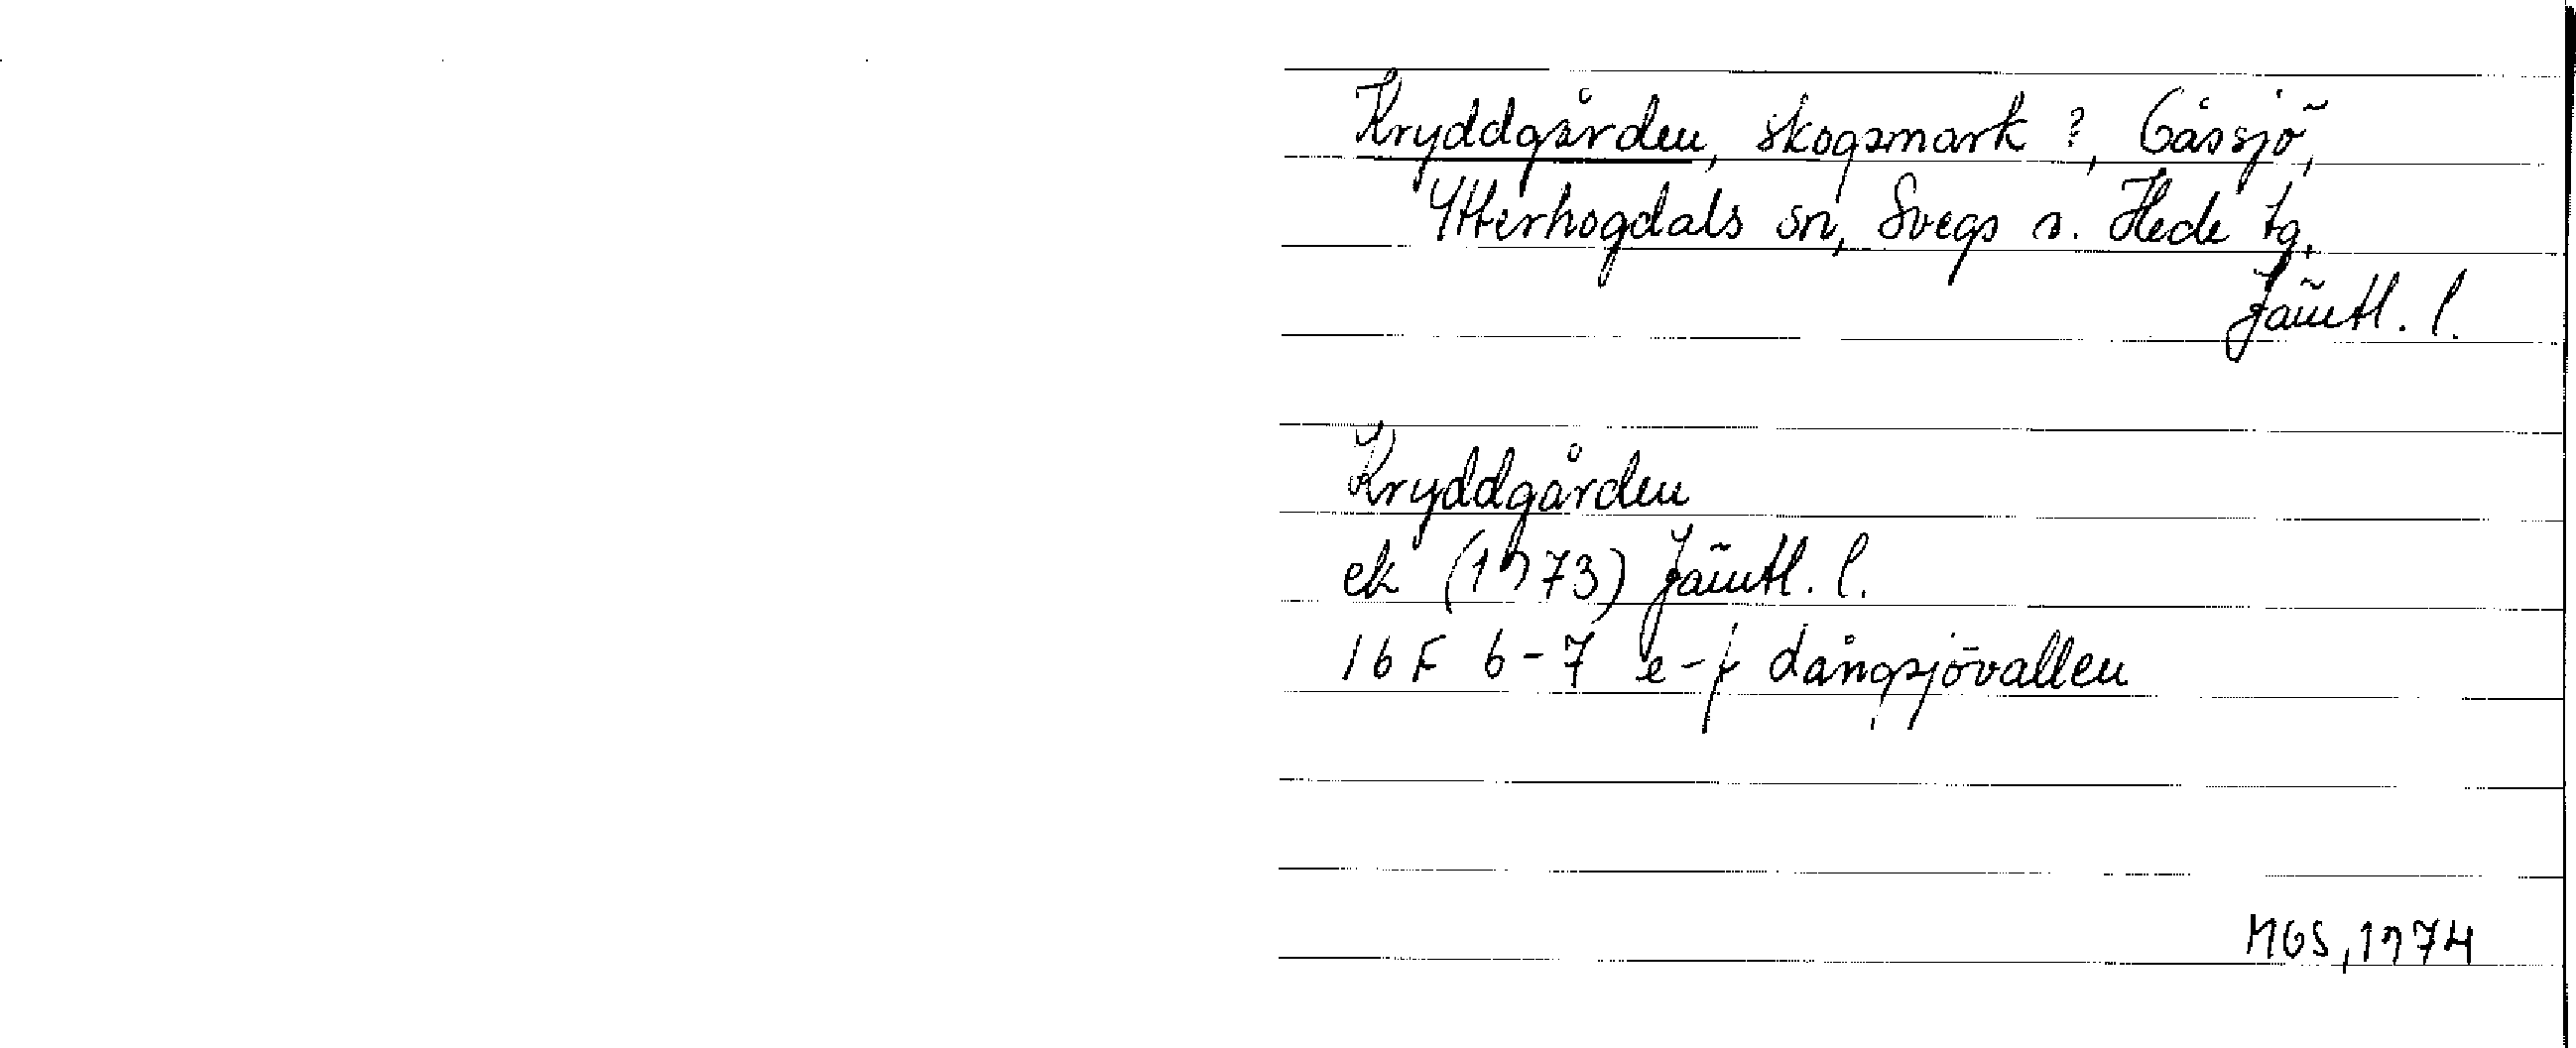 Kryddgården, skogsmark ?, Gåssjö,
Ytterhogdals sn, Svegs o. Hede tg.
Jämtl. l.
Kryddgården
ek (1973) Jämtl. l.
16 F 6-7 e-f Långsjövallen
MGS, 1974